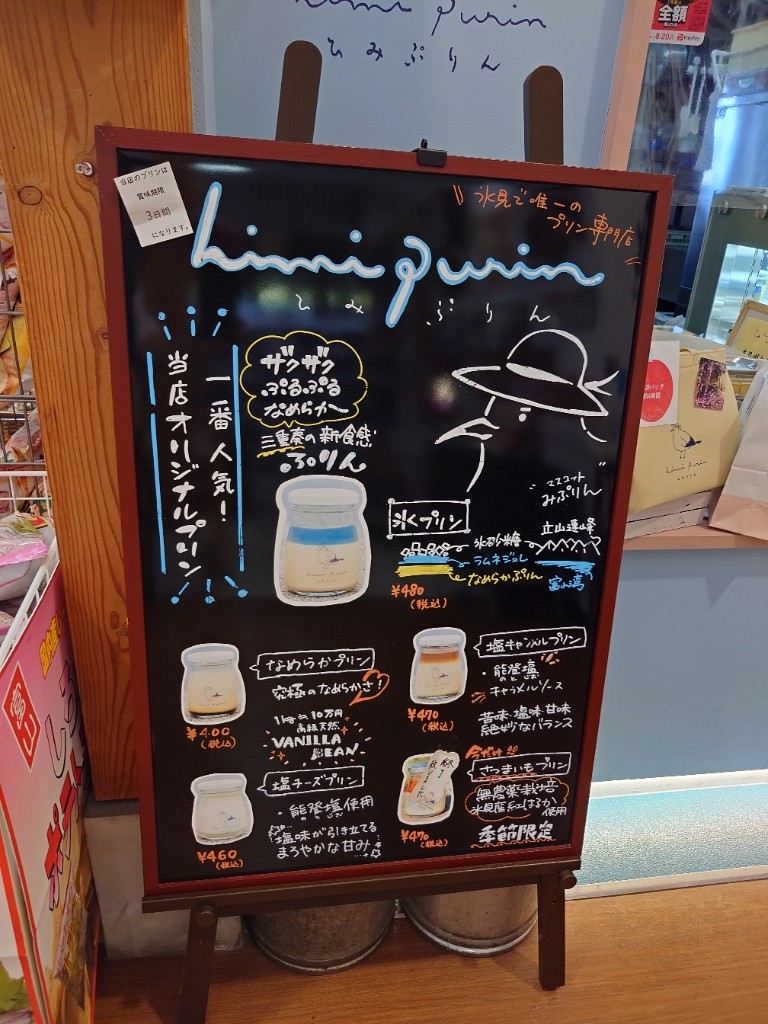 himi purin
ひみぷりん
全額
8/20
当店のプリンは
賞味期限
3日間
になります。
氷見で唯一の
プリン専門店
himi purin
ひみぷりん
一番人気！
当店オリジナルプリン
ザクザク
ぷるぷる
なめらか〜
三重奏の新食感
ぷりん
himi purin
マスコット
みぷりん
氷プリン
氷砂糖
ラムネジュレ
なめらかぷりん
立山連峰
富山湾
¥480
(税込)
なめらかプリン
究極のなめらかさ！
1kg≒10万円
高級天然
VANILLA
BEAN
¥400
(税込)
塩キャラメルプリン
・能登塩
のと
キャラメルソース
苦味・塩味・甘味
絶妙なバランス
¥470
(税込)
塩チーズプリン
・能登塩使用
塩味が引き立てる
まろやかな甘み
¥460
(税込)
今だけ!!
さつまいもプリン
無農薬栽培
氷見産紅はるか
使用
季節限定
終了
¥470
(税込)
himi purin